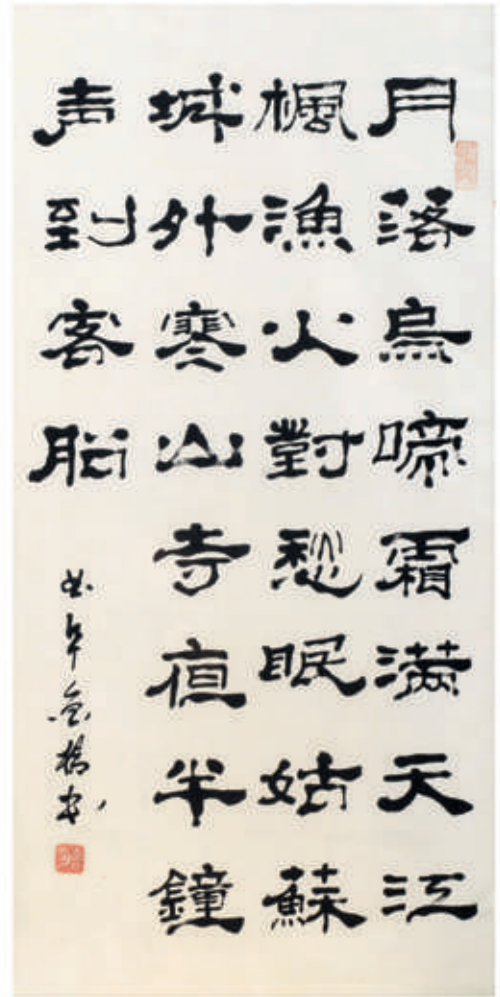 月落烏啼霜满天江
楓漁火對愁眠姑蘇
城外寒山寺夜半鐘
声到客船